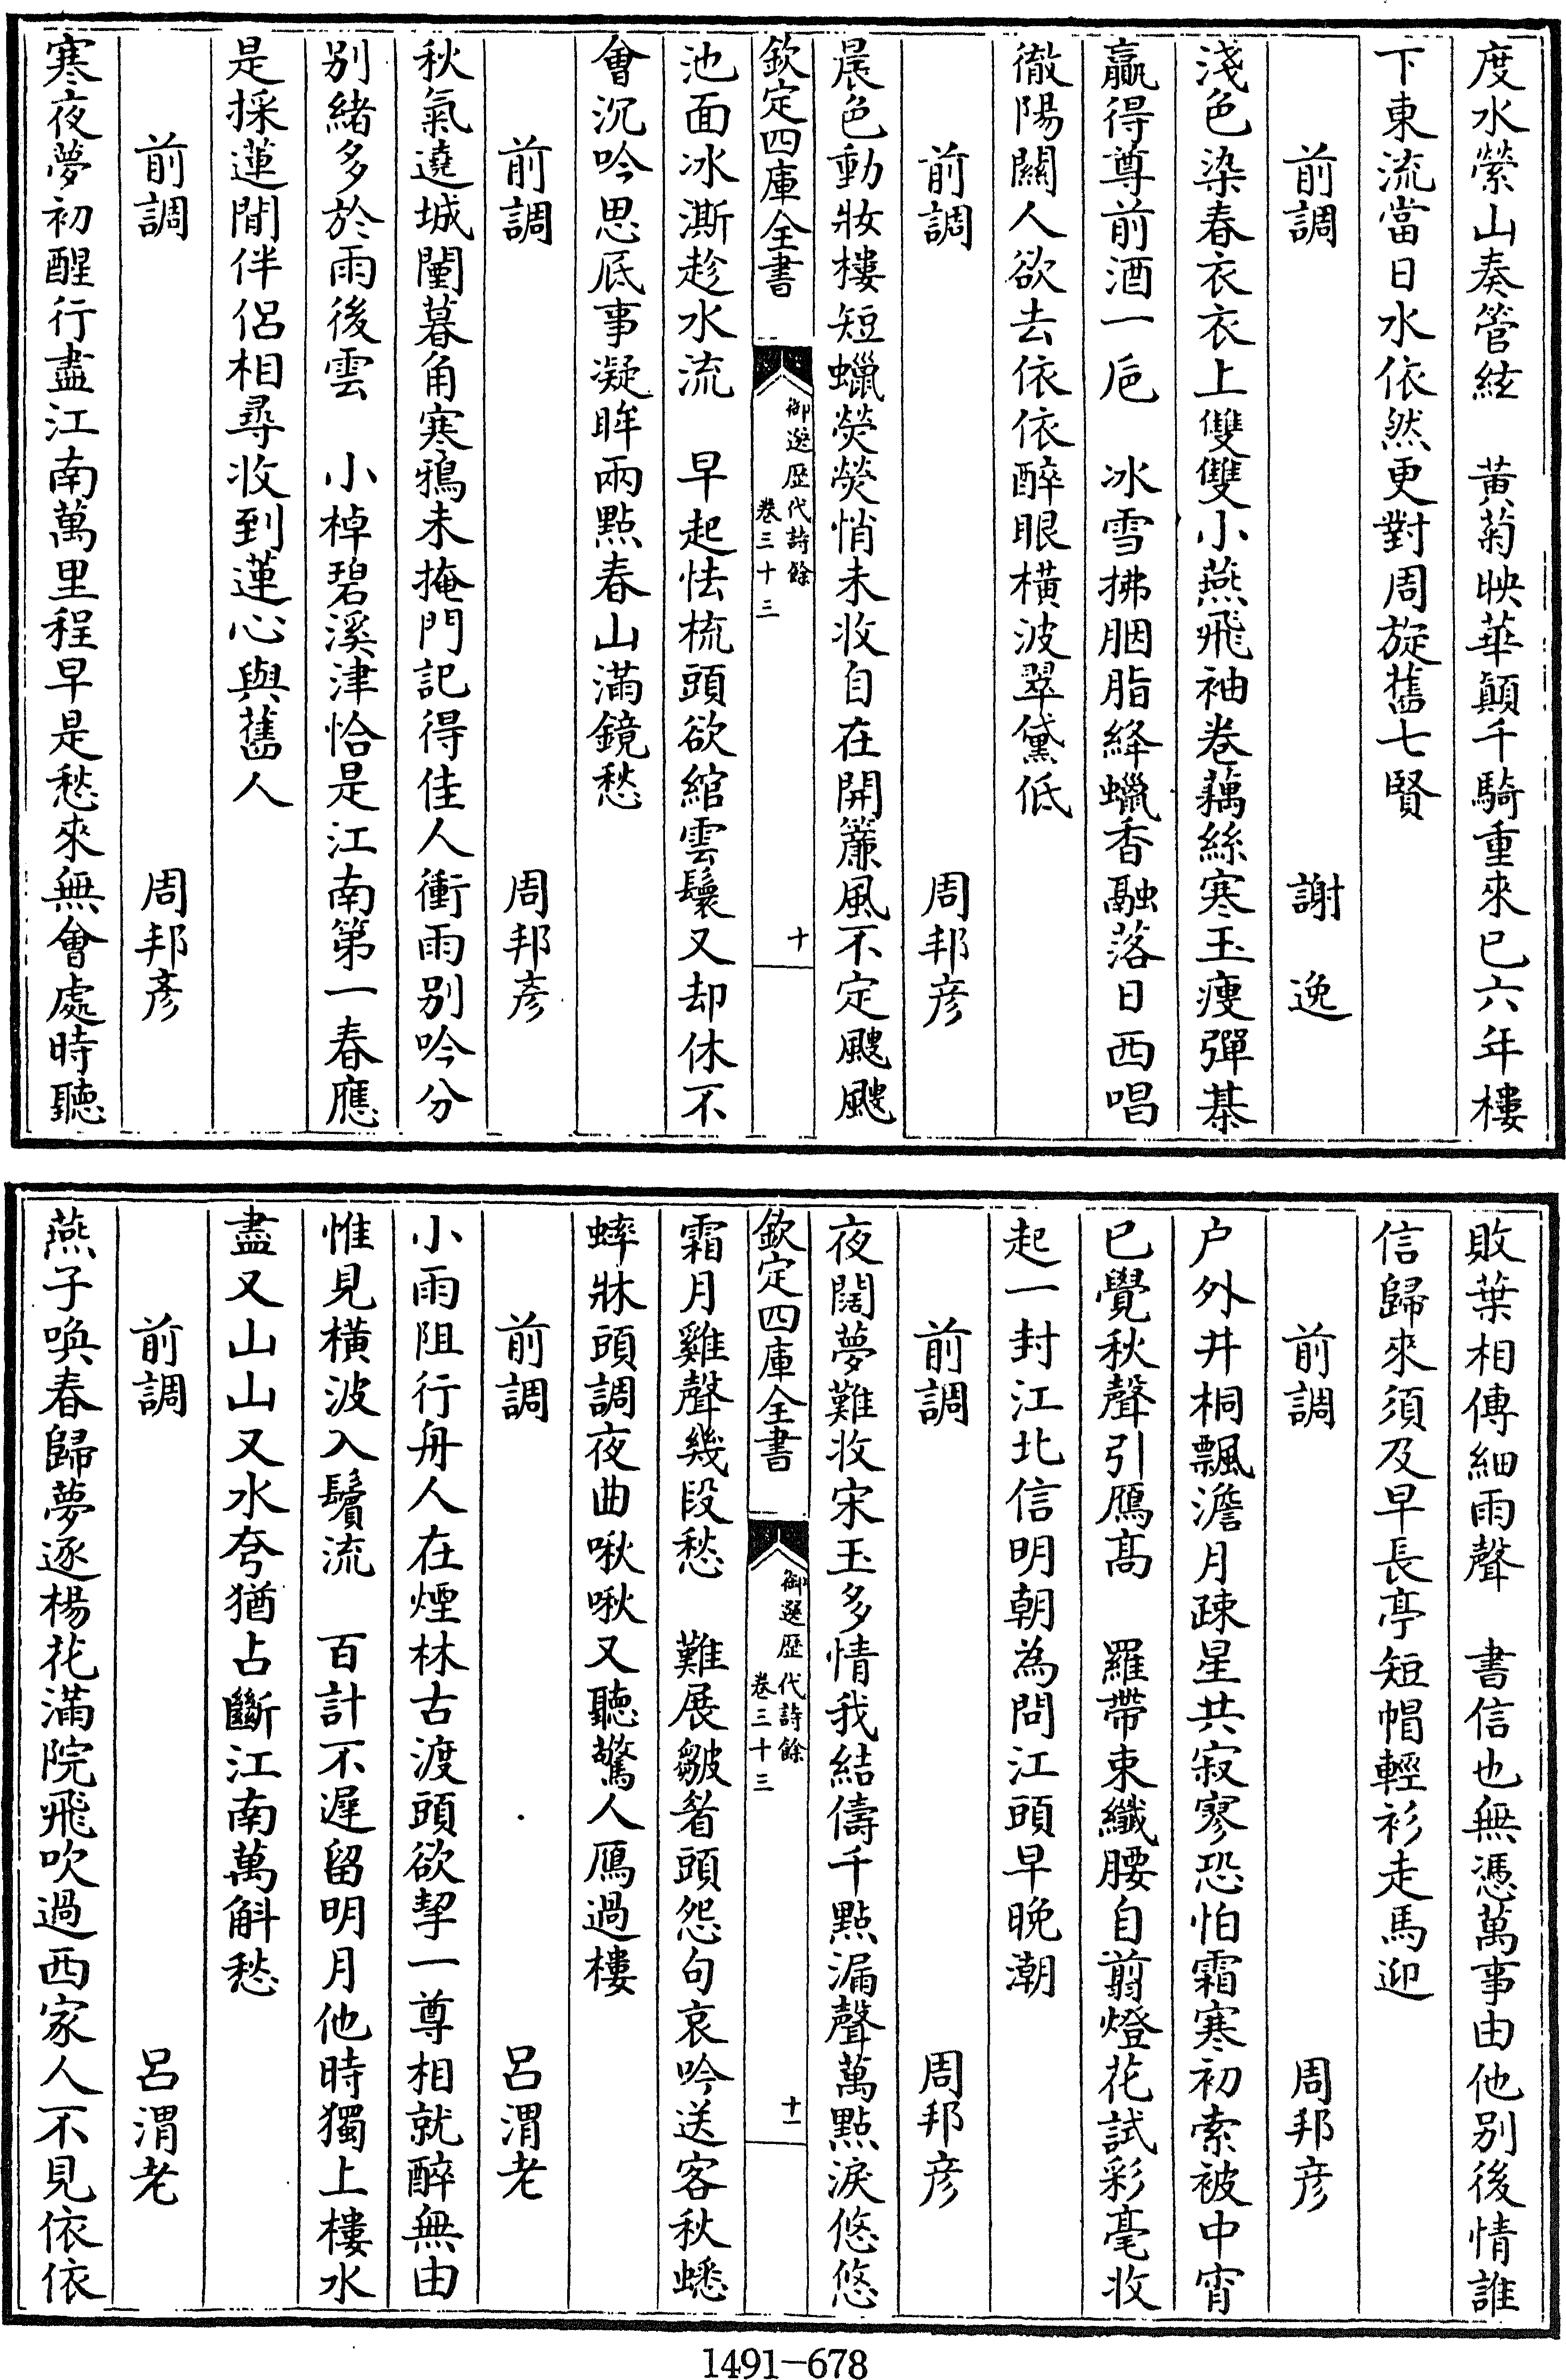 度水縈山奏管絃　黄菊映華顛千騎重來已六年樓
下東流當日水依然更對周旋舊七賢
前調　謝逸
淺色染春衣衣上雙雙小燕飛袖卷藕絲寒玉瘦彈棊
贏得尊前酒一巵　冰雪拂胭脂絳蠟香融落日西唱
徹陽關人欲去依依醉眼橫波翠黛低
前調　周邦彦
晨色動妝樓短蠟熒熒悄未收自在開簾風不定颼颼
欽定四庫全書　御選歷代詩餘　卷三十三　十
池面冰澌趁水流　早起怯梳頭欲綰雲鬟又却休不
會沉吟思底事凝眸兩點春山滿鏡愁
前調　周邦彥
秋氣遶城闉暮角寒鴉未掩門記得佳人衝雨别吟分
别緒多於雨後雲　小棹碧溪津恰是江南第一春應
是採蓮閒伴侶相尋收到蓮心與舊人
前調　周邦彥
寒夜夢初醒行盡江南萬里程早是愁來無會處時聽
敗葉相傳細雨聲　書信也無憑萬事由他别後情誰
信歸來須及早長亭短帽輕衫走馬迎
前調　周邦彦
户外井桐飄澹月疎星共寂寥恐怕霜寒初索被中宵
已覺秋聲引鴈髙　羅帶束纖腰自翦燈花試彩毫收
起一封江北信明朝為問江頭早晚潮
前調　周邦彦
夜闊夢難收宋玉多情我結儔千點漏聲萬點淚悠悠
欽定四庫全書　御選歷代詩餘　卷三十三　十一
霜月雞聲幾段愁　難展皺眉頭怨句哀吟送客秋蟋
蟀牀頭調夜曲啾啾又聽驚人鴈過樓
前調　呂渭老
小雨阻行舟人在煙林古渡頭欲挈一尊相就醉無由
惟見橫波入鬢流　百計不遲留明月他時獨上樓水
盡又山山又水夸猶占斷江南萬斛愁
前調　呂渭老
燕子喚春歸夢逐楊花滿院飛吹過西家人不見依依
1491-678